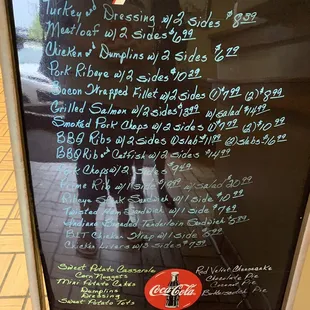 Turkey n' Dressing w/2 Sides $8.39
Meatloaf w/2 Sides $6.99
Chicken n' Dumplins w/2 Sides $6.79
Pork Ribeye w/2 Sides $10.29
Bacon Wrapped Fillet w/2 Sides (1) $7.99 (2) $8.99
Grilled Salmon w/2 Sides w/Salad
Smoked Pork Chops w/2 Sides (1) $7.99 (2) $10.99
BBQ Ribs w/2 Sides
BBQ Rib n' Catfish w/2 Sides
Pork Chops w/2
Prime Rib w/1 Side w/Salad
Ribeye Steak Sandwich w/1 Side
Ham Sandwich w/1 Side
Breaded Tenderloin Sandwich
BLT Chicken Wrap w/1 Side
Chicken Livers w/2 Sides $7.99
Sweet Potato Casserole
Corn Nuggets
Mini Potato Cakes
Dumplins
Dressing
Sweet Potato Tots
Coca-Cola
Red Velvet Cheesecake
Chocolate Pie
Coconut Pie
Pie